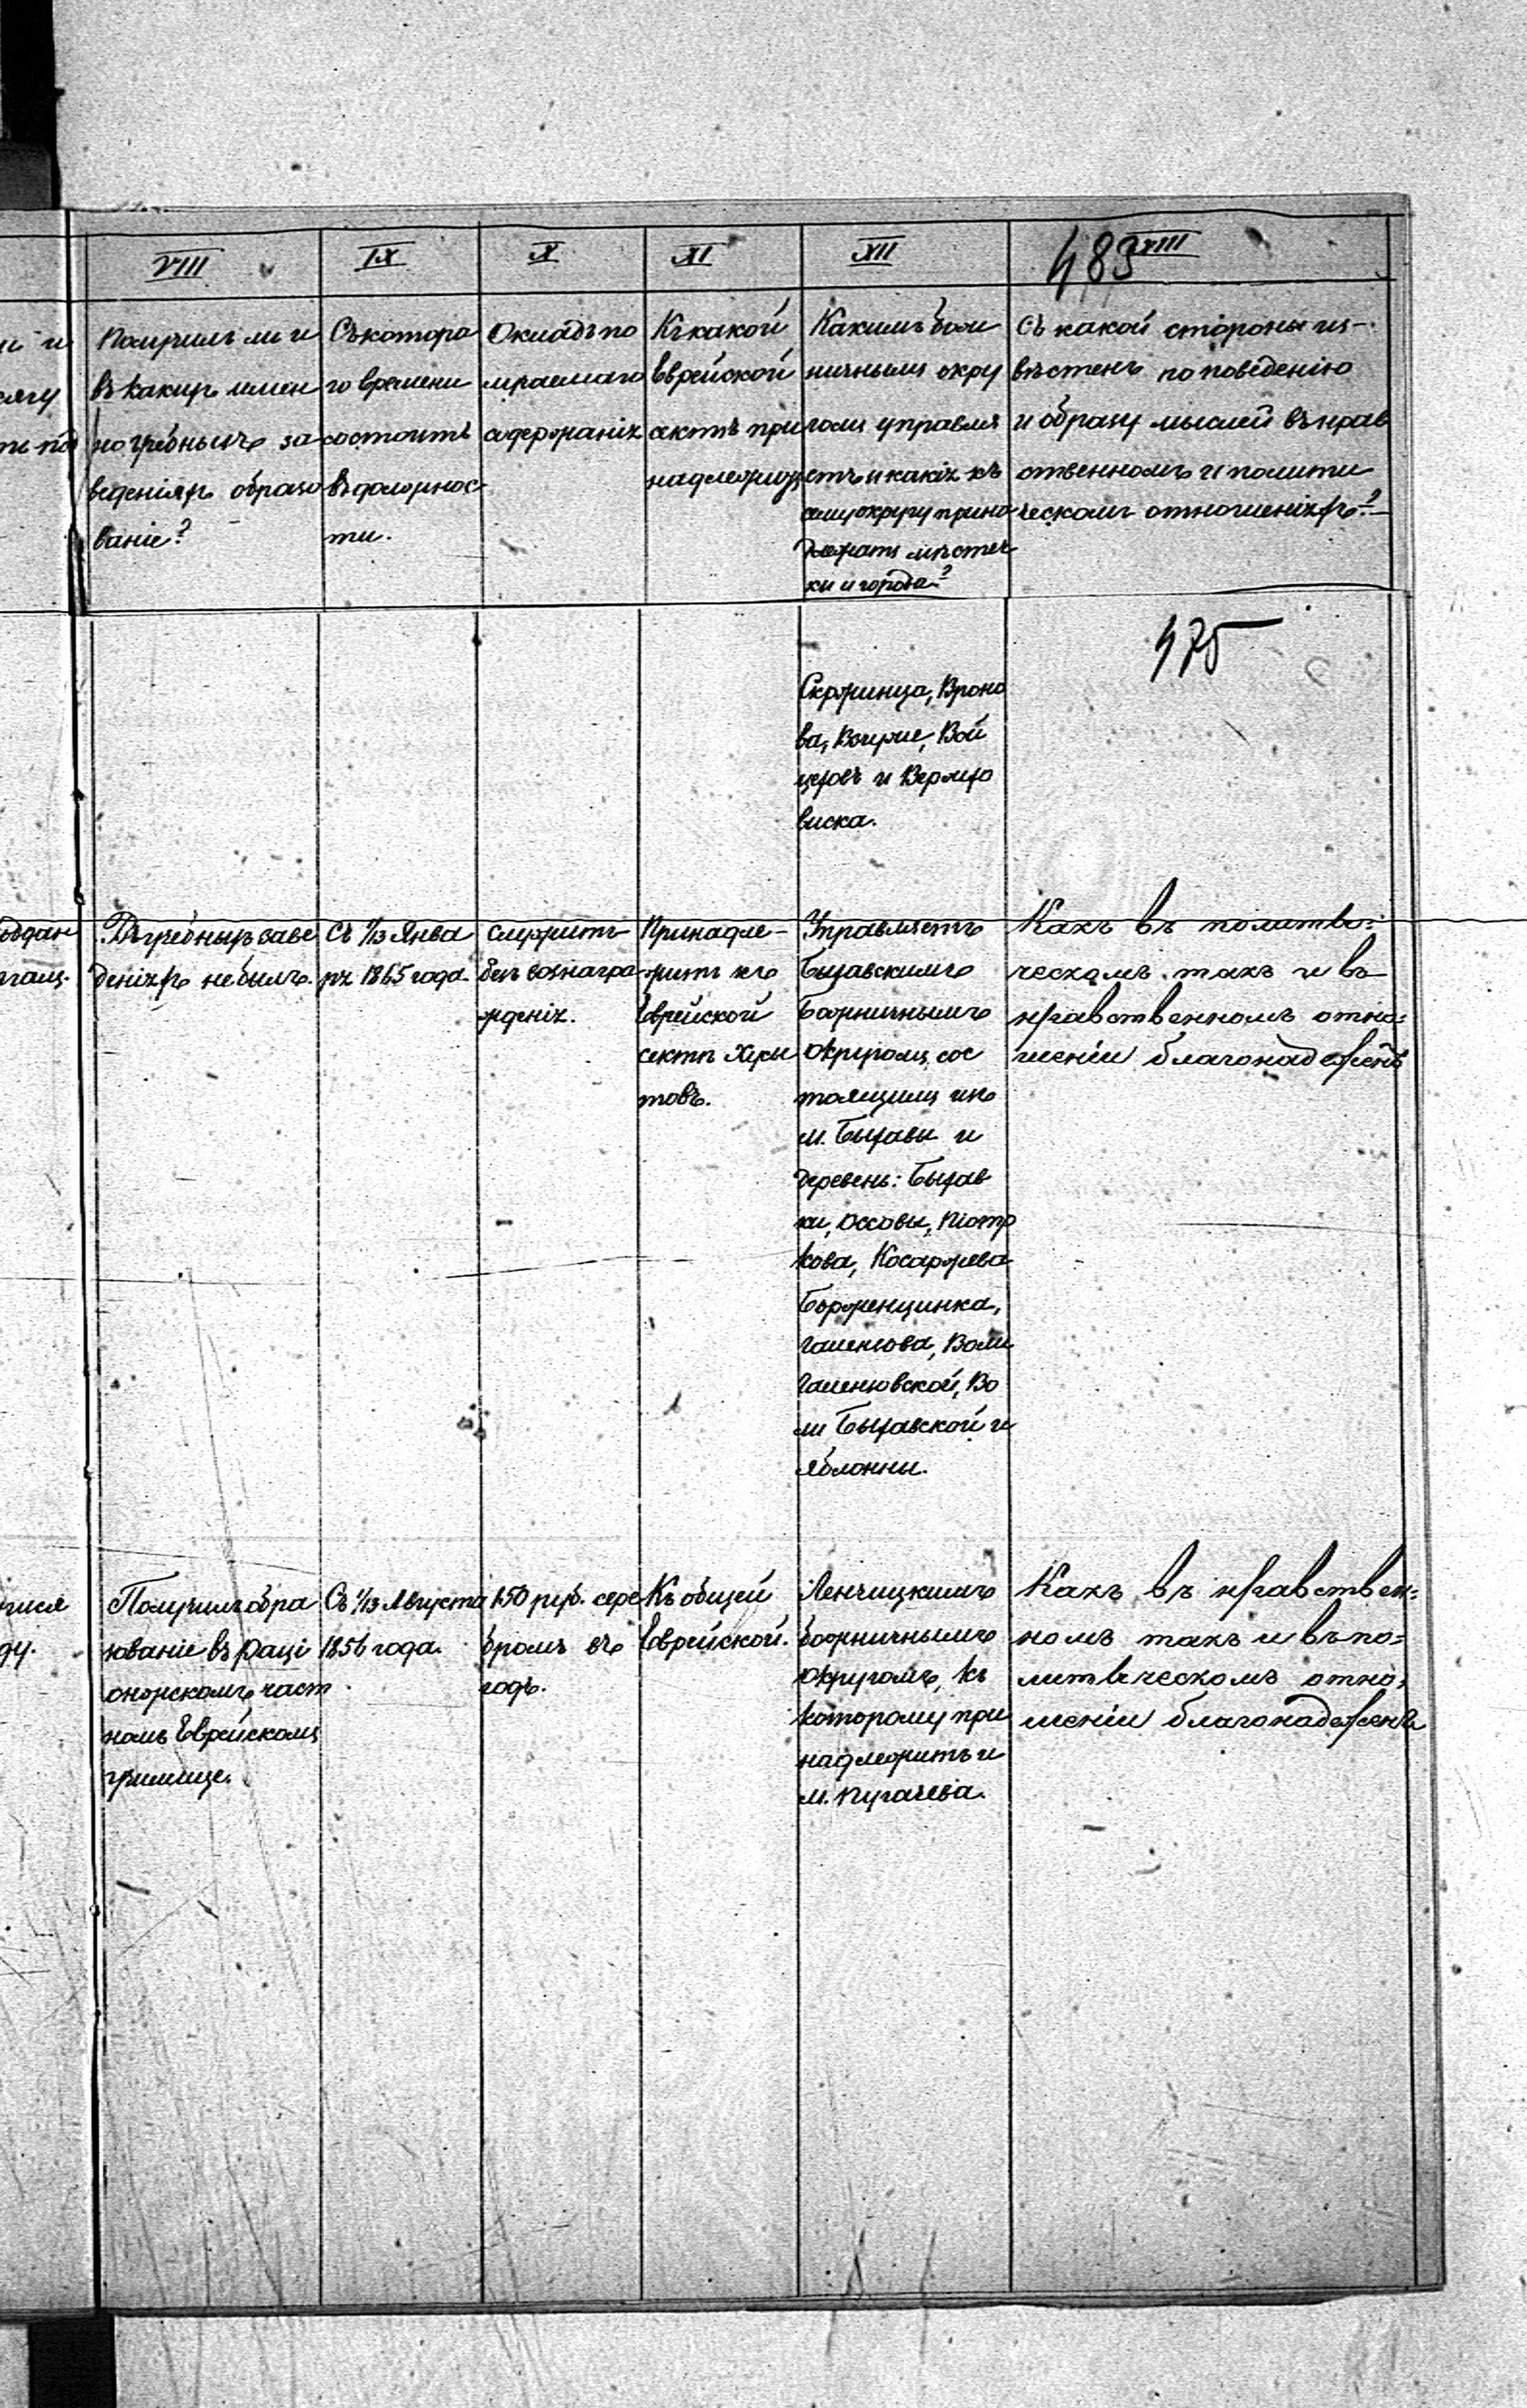 VIII
IX
X
XI
XII
XIII
483
Получилъ ли и
въ какихъ имен
но учебныхъ за
веденіяхъ образо
ваніе?
Съ котора
го времени
состоитъ
въ должнос
ти.
Окладъ по
лучаемаго
содержанія
Къ какой
Еврейской
сектѣ при
надлежитъ
Какимъ бож
ничнымъ окру
гомъ управля
етъ и какія къ
сему округу прина
длежатъ мѣстеч
ки и города?
Съ какой стороны из-
вѣстенъ по поведенію
и образу мыслей въ нрав
ственномъ и полити
ческомъ отношеніяхъ?
475
Скржинца, Вроно
ва,
цховъ и
виска.
Въ учебныхъ заве
деніяхъ не былъ.
Съ 1/13 Янва
ря 1865 года.
Служитъ
безъ вознагра
жденія.
Принадле-
житъ къ
Еврейской
сектѣ Хуси
товъ.
Управляетъ
Быхавскимъ
Божничнымъ
Округомъ, сос
тоящимъ изъ
м. Быхавы и
деревень: Быхав
ки, Оссовы, Піотр
кова, Косаржева
Бторженцинка,
Галензова, Воли
Галензовской, Во
ли Быхавской и
Яблонны.
Какъ въ полити-
ческомъ такъ и въ
нравственномъ отно-
шеніи благонадеженъ
Получилъ обра
зованіе въ Раці
онжскомъ част
номъ Еврейскомъ
училище.
Съ 1/13 Августа
1856 года.
150 руб. сере
бромъ въ
годъ.
Къ общей
Еврейской.
Ленчицкимъ
божничнымъ
Округомъ, къ
которому при
надлежитъ и
м. Пугачева.
Какъ въ нравствен-
номъ такъ и въ по-
литическомъ отно-
шеніи благонадеженъ